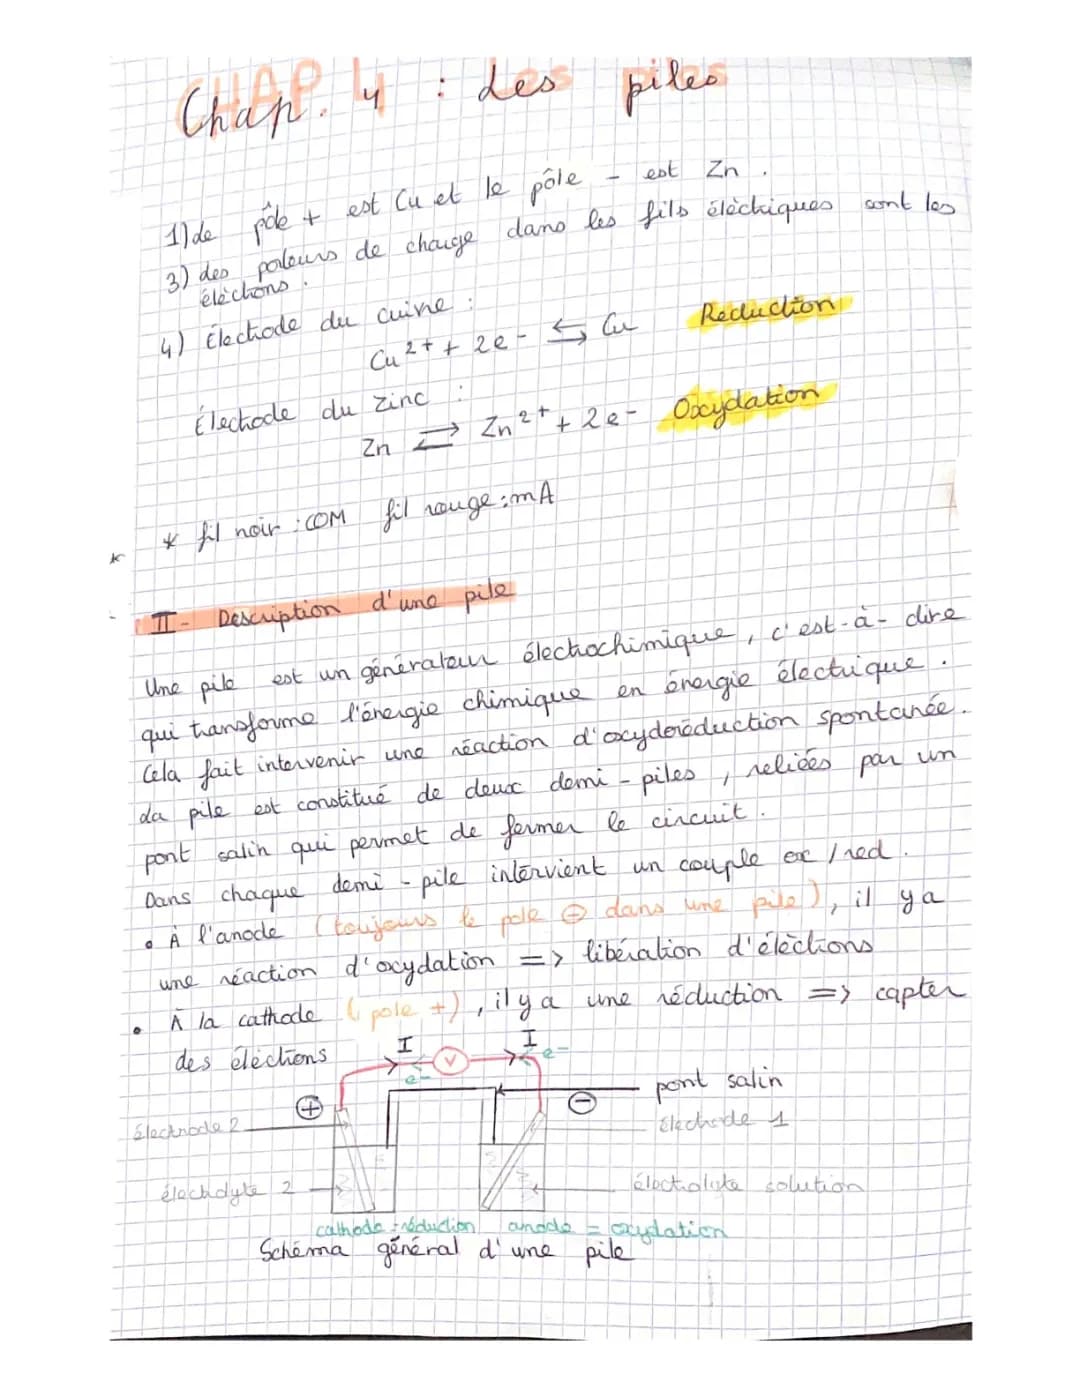 Chap. 4 : Les piles
1) Le pôle + est Cu et le pôle - est Zn .
3) Les porteurs de charge dans les fils éléctriques sont les
éléctrons .
4) Électrode du cuivre :
Cu²⁺ + 2e⁻ ⇆ Cu Réduction
Électrode du zinc :
Zn ⇄ Zn²⁺ + 2e⁻ Oxydation
* fil noir : COM fil rouge : mA
II - Description d'une pile
Une pile est un générateur électrochimique, c'est-à-dire
qui transforme l'énergie chimique en énergie électrique .
Cela fait intervenir une réaction d'oxydoréduction spontanée .
La pile est constitué de deux demi-piles, reliées par un
pont salin qui permet de fermer le circuit .
Dans chaque demi-pile intervient un couple ox/red .
• À l'anode (toujours le pole ⊕ dans une pile), il y a
une réaction d'oxydation => libération d'éléctrons
• À la cathode (pole +), il y a une réduction => capter
des éléctrons
I I
e⁻ V e⁻
⊕ ⊖ pont salin
électrode 2 électrode 1
électrolyte 2 électrolyte solution
cathode = réduction anode = oxydation
Schéma général d'une pile